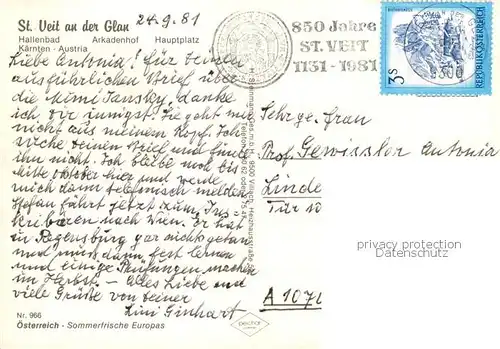 St. Veit an der Glan
24.9.81
Hallenbad Arkadenhof Hauptplatz
Kärnten - Austria
850 Jahre
ST. VEIT
1131-1981
3s
REPUBLIK ÖSTERREICH
9300
Liebe Antonia! für Deinen
ausführlichen Brief über
die Mimi Jansky, danke
ich Dir innigst. Sie geht mir
nicht aus meinem Kopf. Ich
suche Deinen Brief und finde
ihn nicht. Ich bleibe noch bis
Mitte Oktober hier und werde
mich dann telefonisch melden
Stefan fährt jetzt zum Ins-
kribieren nach Wien. Er hat
in Regensburg gar nichts getan
und muss dann fest lernen
und einige Prüfungen machen
im Herbst - Alles Liebe und
viele Grüße von Deiner
Lini Ginhart
Sehrge. Frau
Prof. Gewissler Antonia
Linde
Tür 10
A 107
privacy protection
Datenschutz
Nr. 966
Österreich - Sommerfrische Europas